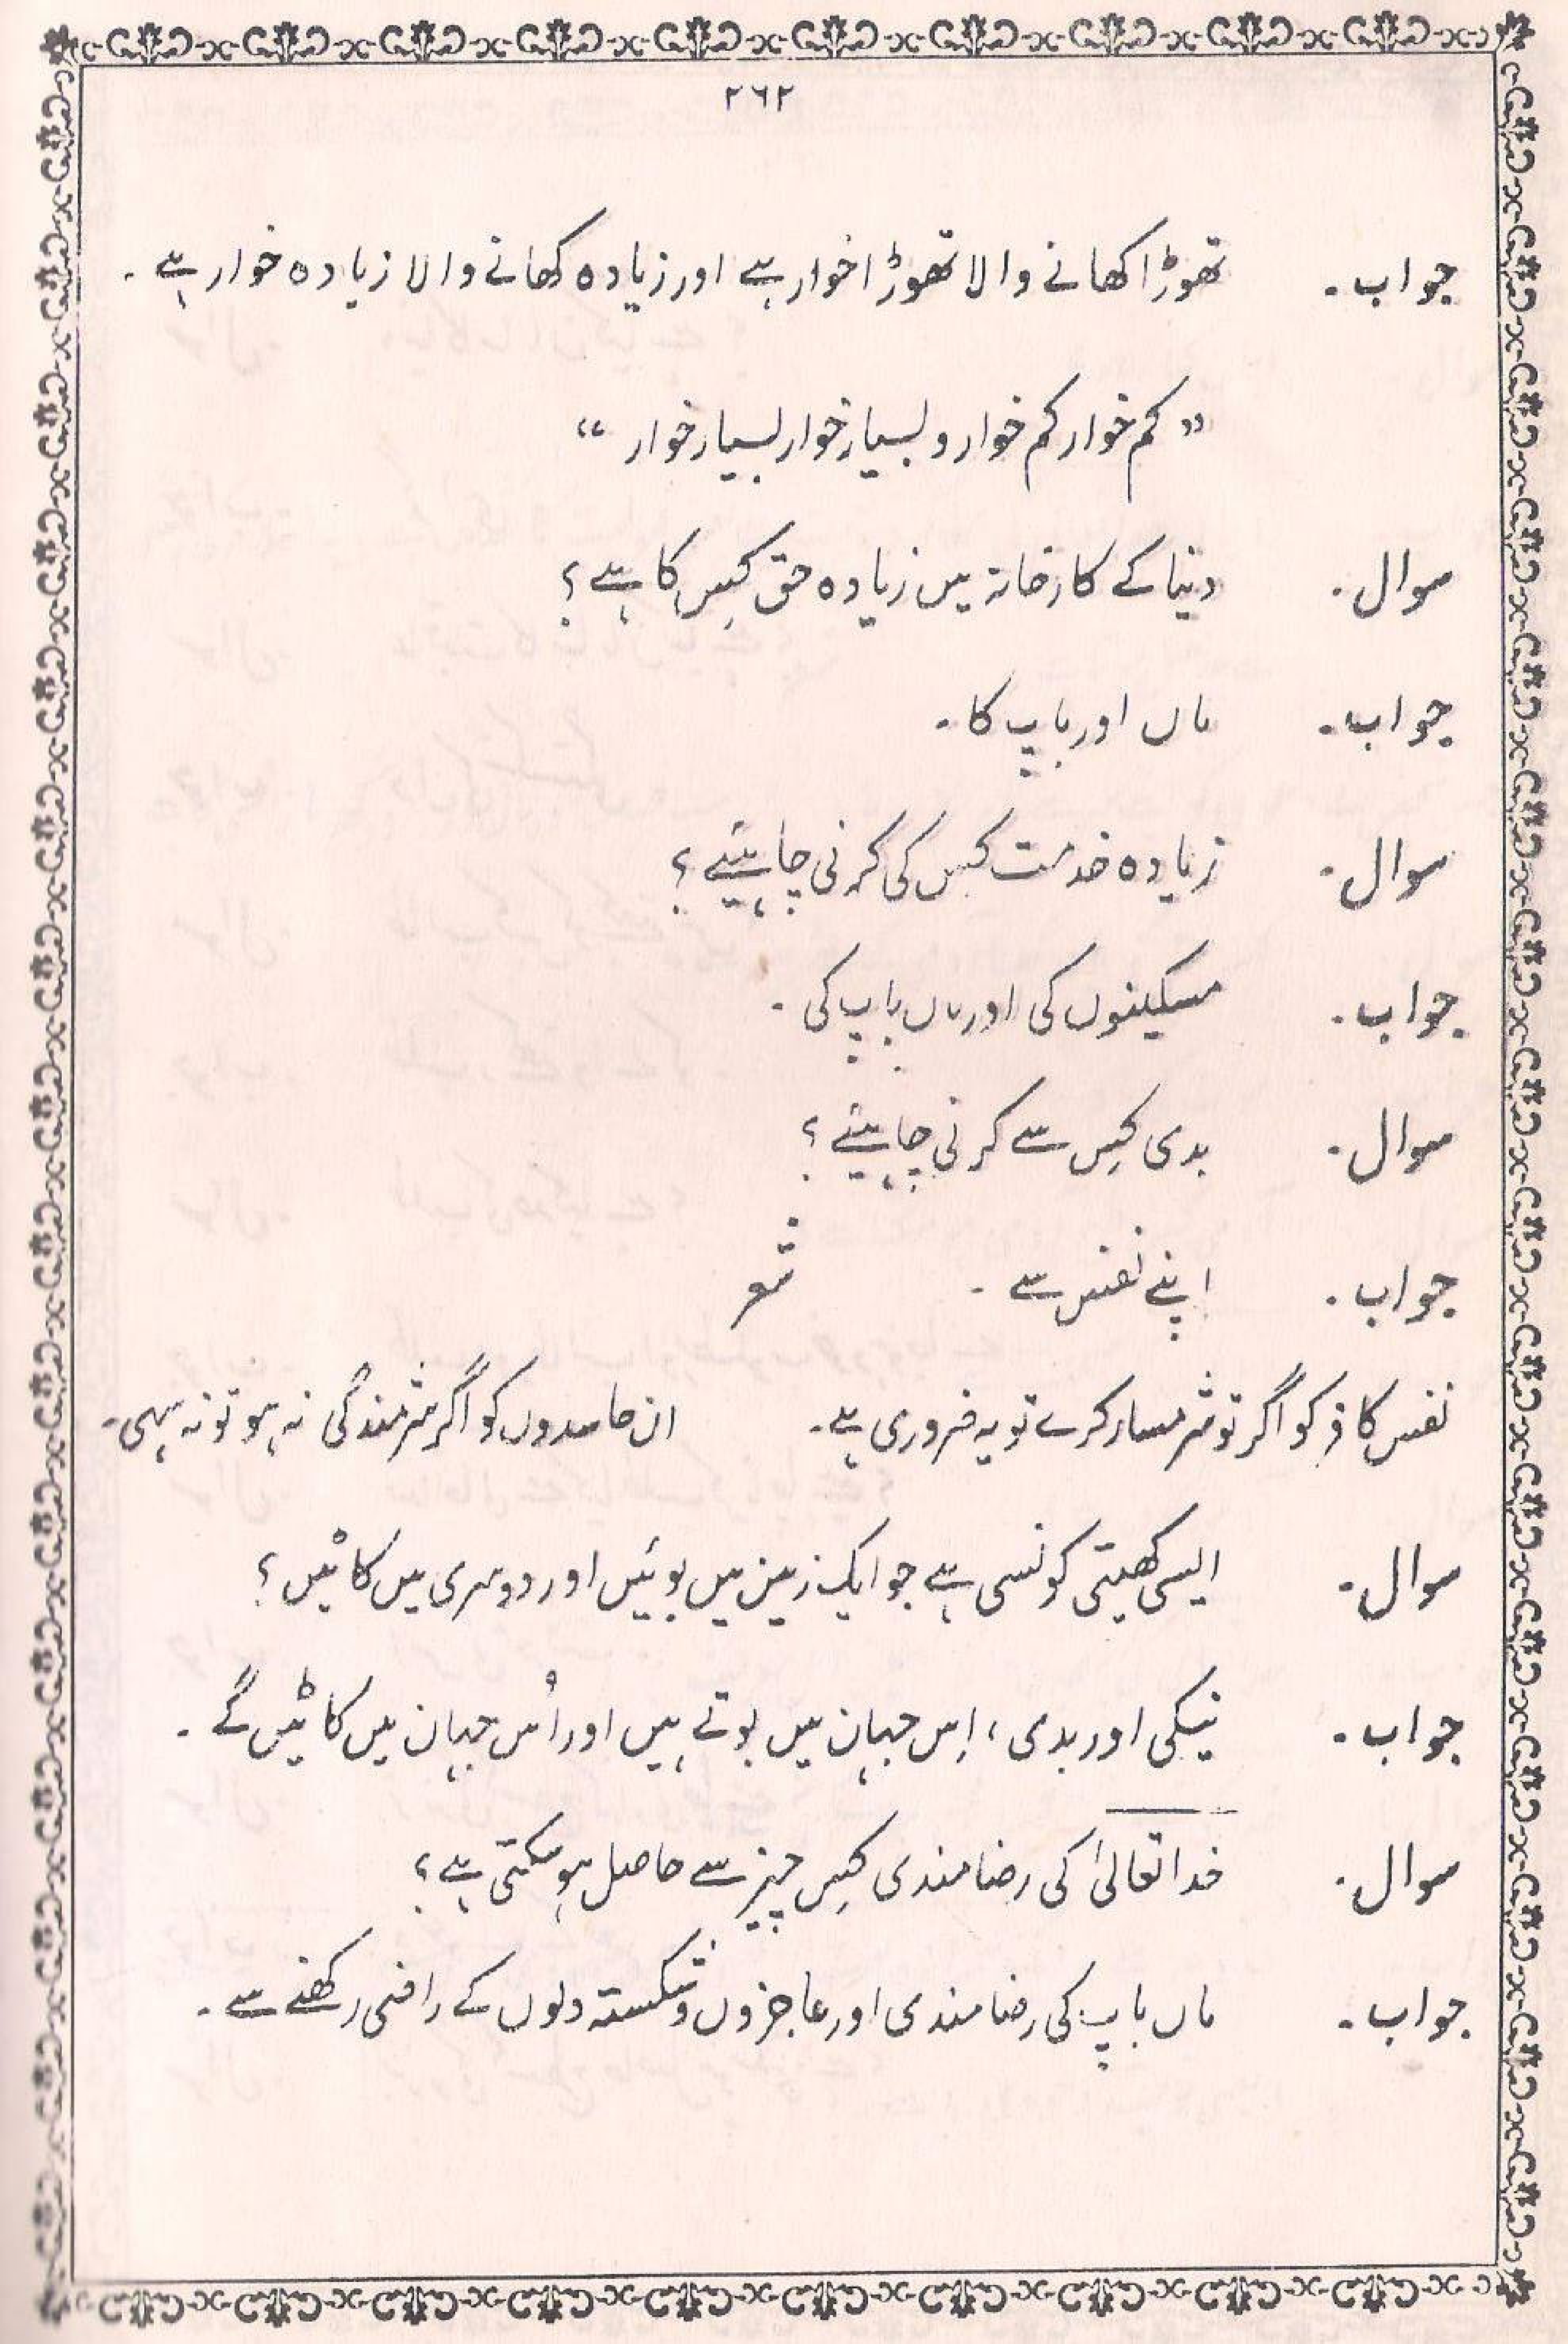 ۲۶۲
جواب۔ تھوڑا کھانے والا تھوڑا خوار ہے اور زیادہ کھانے والا زیادہ خوار ہے۔
”کم خوار کم خوار و بسیار خوار بسیار خوار“
سوال۔ دنیا کے کارخانہ میں زیادہ حق کِس کا ہے؟
جواب۔ ماں اور باپ کا۔
سوال۔ زیادہ خدمت کس کی کرنی چاہیئے؟
جواب۔ مسکینوں کی اور ماں باپ کی۔
سوال۔ بدی کِس سے کرنی چاہیئے؟
جواب۔ اپنے نفس سے۔ شعر
نفس کافر کو اگر تو شرمسار کرے تو یہ ضروری ہے۔ ان حاسدوں کو اگر شرمندگی نہ ہو تو نہ سہی۔
سوال۔ ایسی کھیتی کونسی ہے جو ایک زمین میں بوئیں اور دوسری میں کاٹیں؟
جواب۔ نیکی اور بدی، اِس جہان میں بوتے ہیں اور اُس جہان میں کاٹیں گے۔
سوال۔ خدا تعالیٰ کی رضامندی کِس چیز سے حاصل ہو سکتی ہے؟
جواب۔ ماں باپ کی رضامندی اور عاجزوں و شکستہ دلوں کے راضی رکھنے سے۔